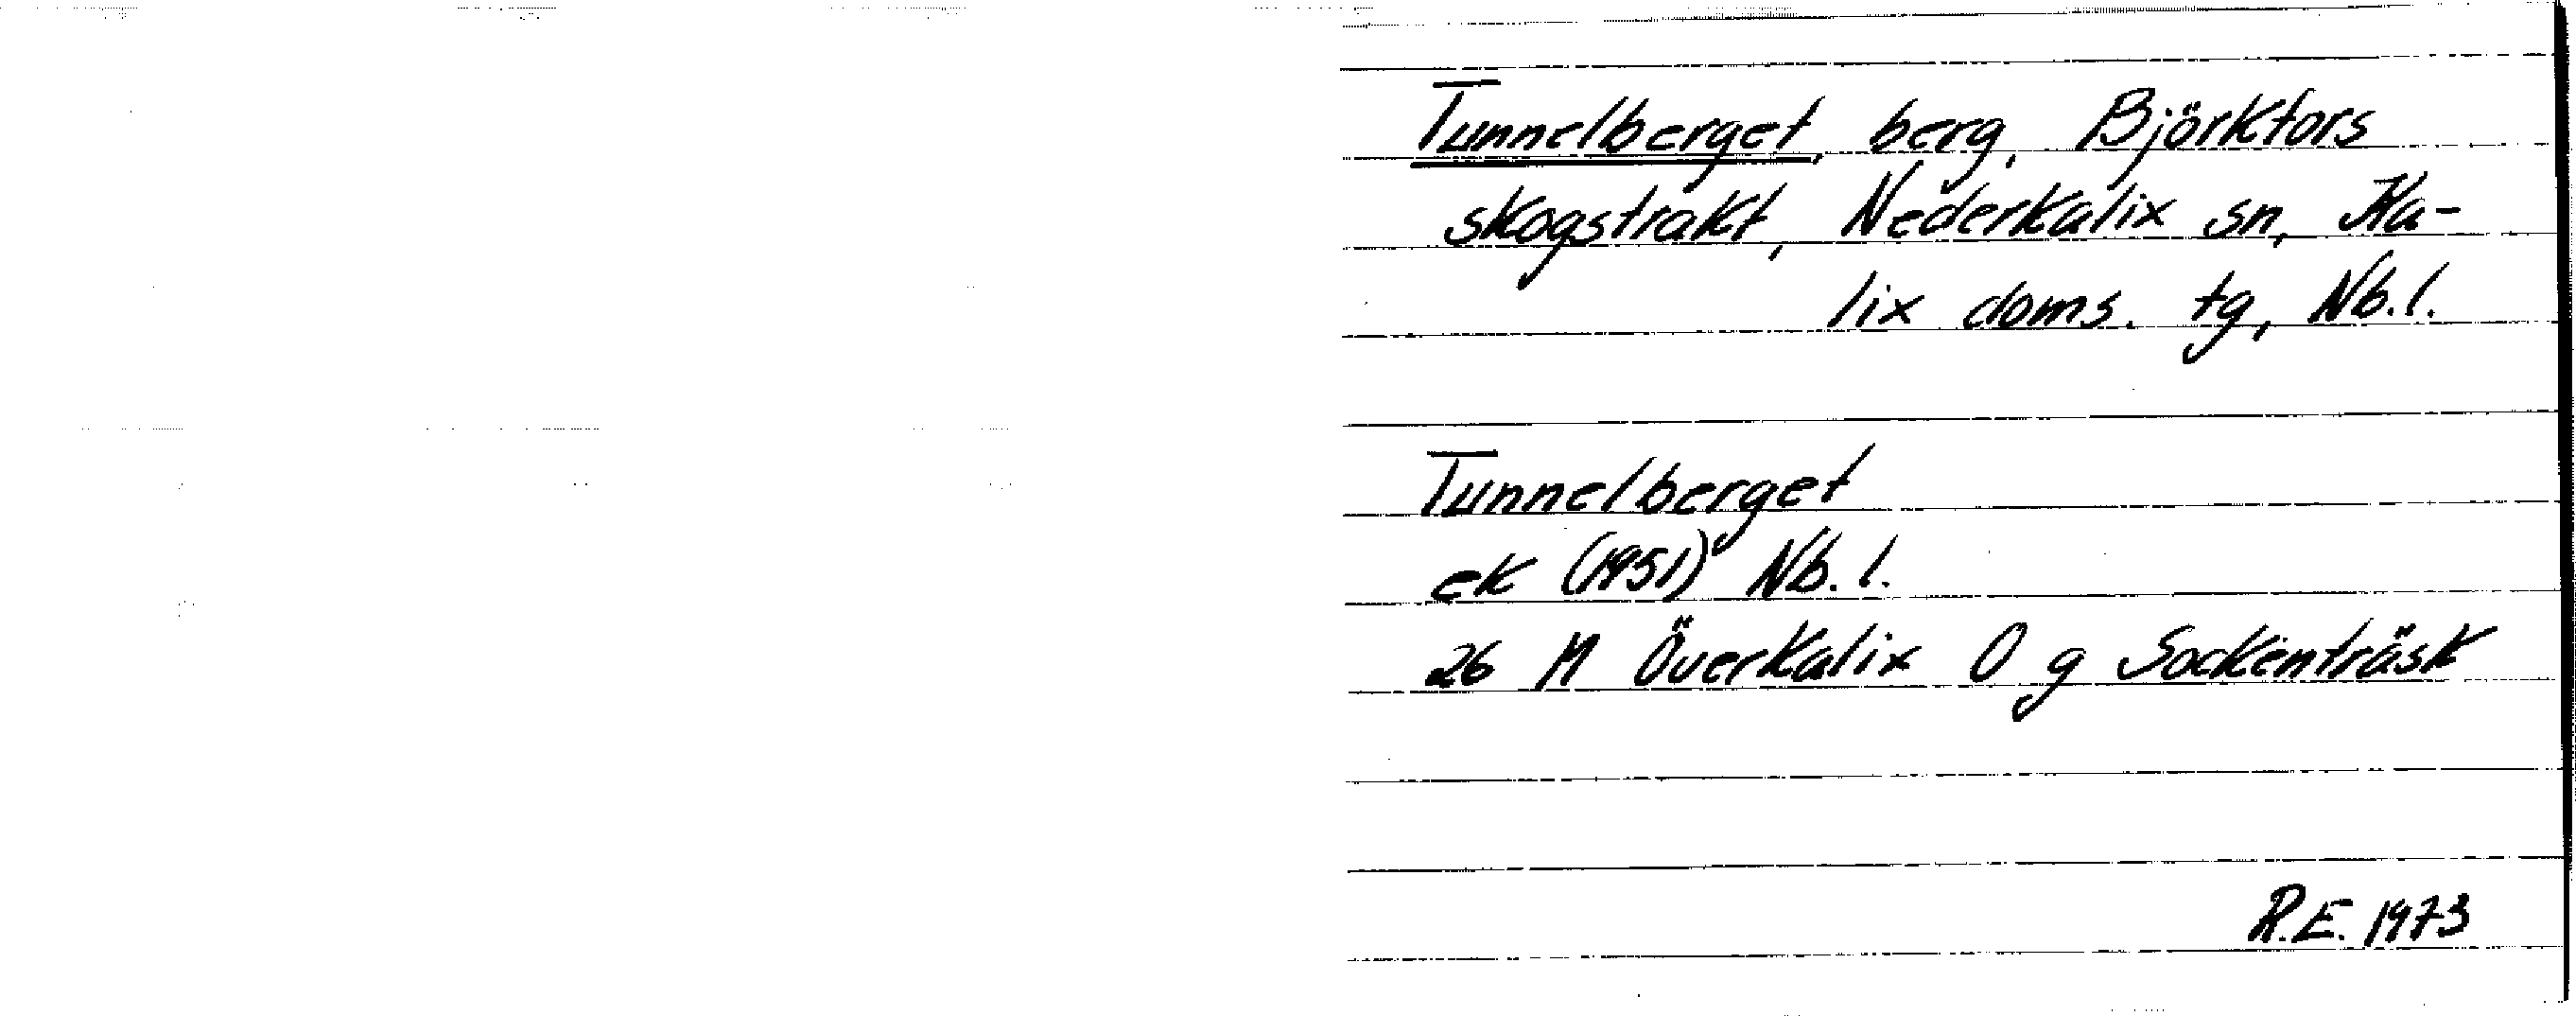 Tunnelberget, berg, Björkfors
skogstrakt, Nederkalix sn, Ka-
lix doms. tg, Nb.l.
Tunnelberget
ek (1951) Nb. l.
26 M Överkalix O g Sockenträsk
R.E. 1973